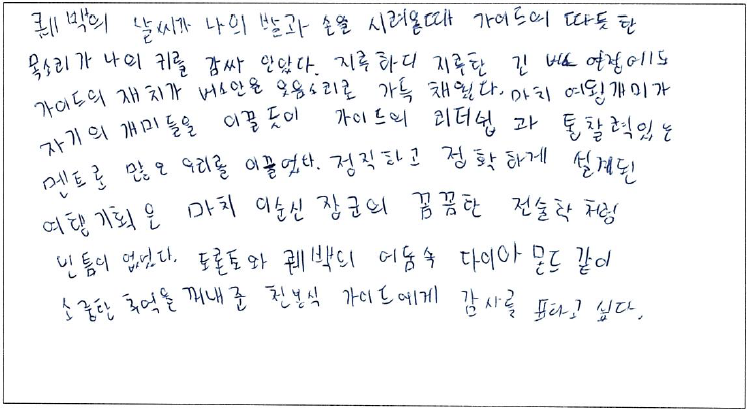 퀘벡의 날씨가 나의 발과 손을 시려올때 가이드의 따듯한
목소리가 나의 귀를 감싸 안았다. 지루하디 지루한 긴 버스 여정에도
가이드의 재치가 버스안을 웃음소리로 가득 채웠다. 마치 여왕개미가
자기의 개미들을 이끌듯이 가이드의 리더쉽 과 통찰력있는
멘트로 많은 우리를 이끌었다. 정직하고 정확하게 설계된
여행기획은 마치 이순신 장군의 꼼꼼한 전술학처럼
빈틈이 없었다. 토론토와 퀘벡의 어둠속 다이아몬드 같이
소중한 추억을 꺼내준 천봉식 가이드에게 감사를 표하고 싶다.